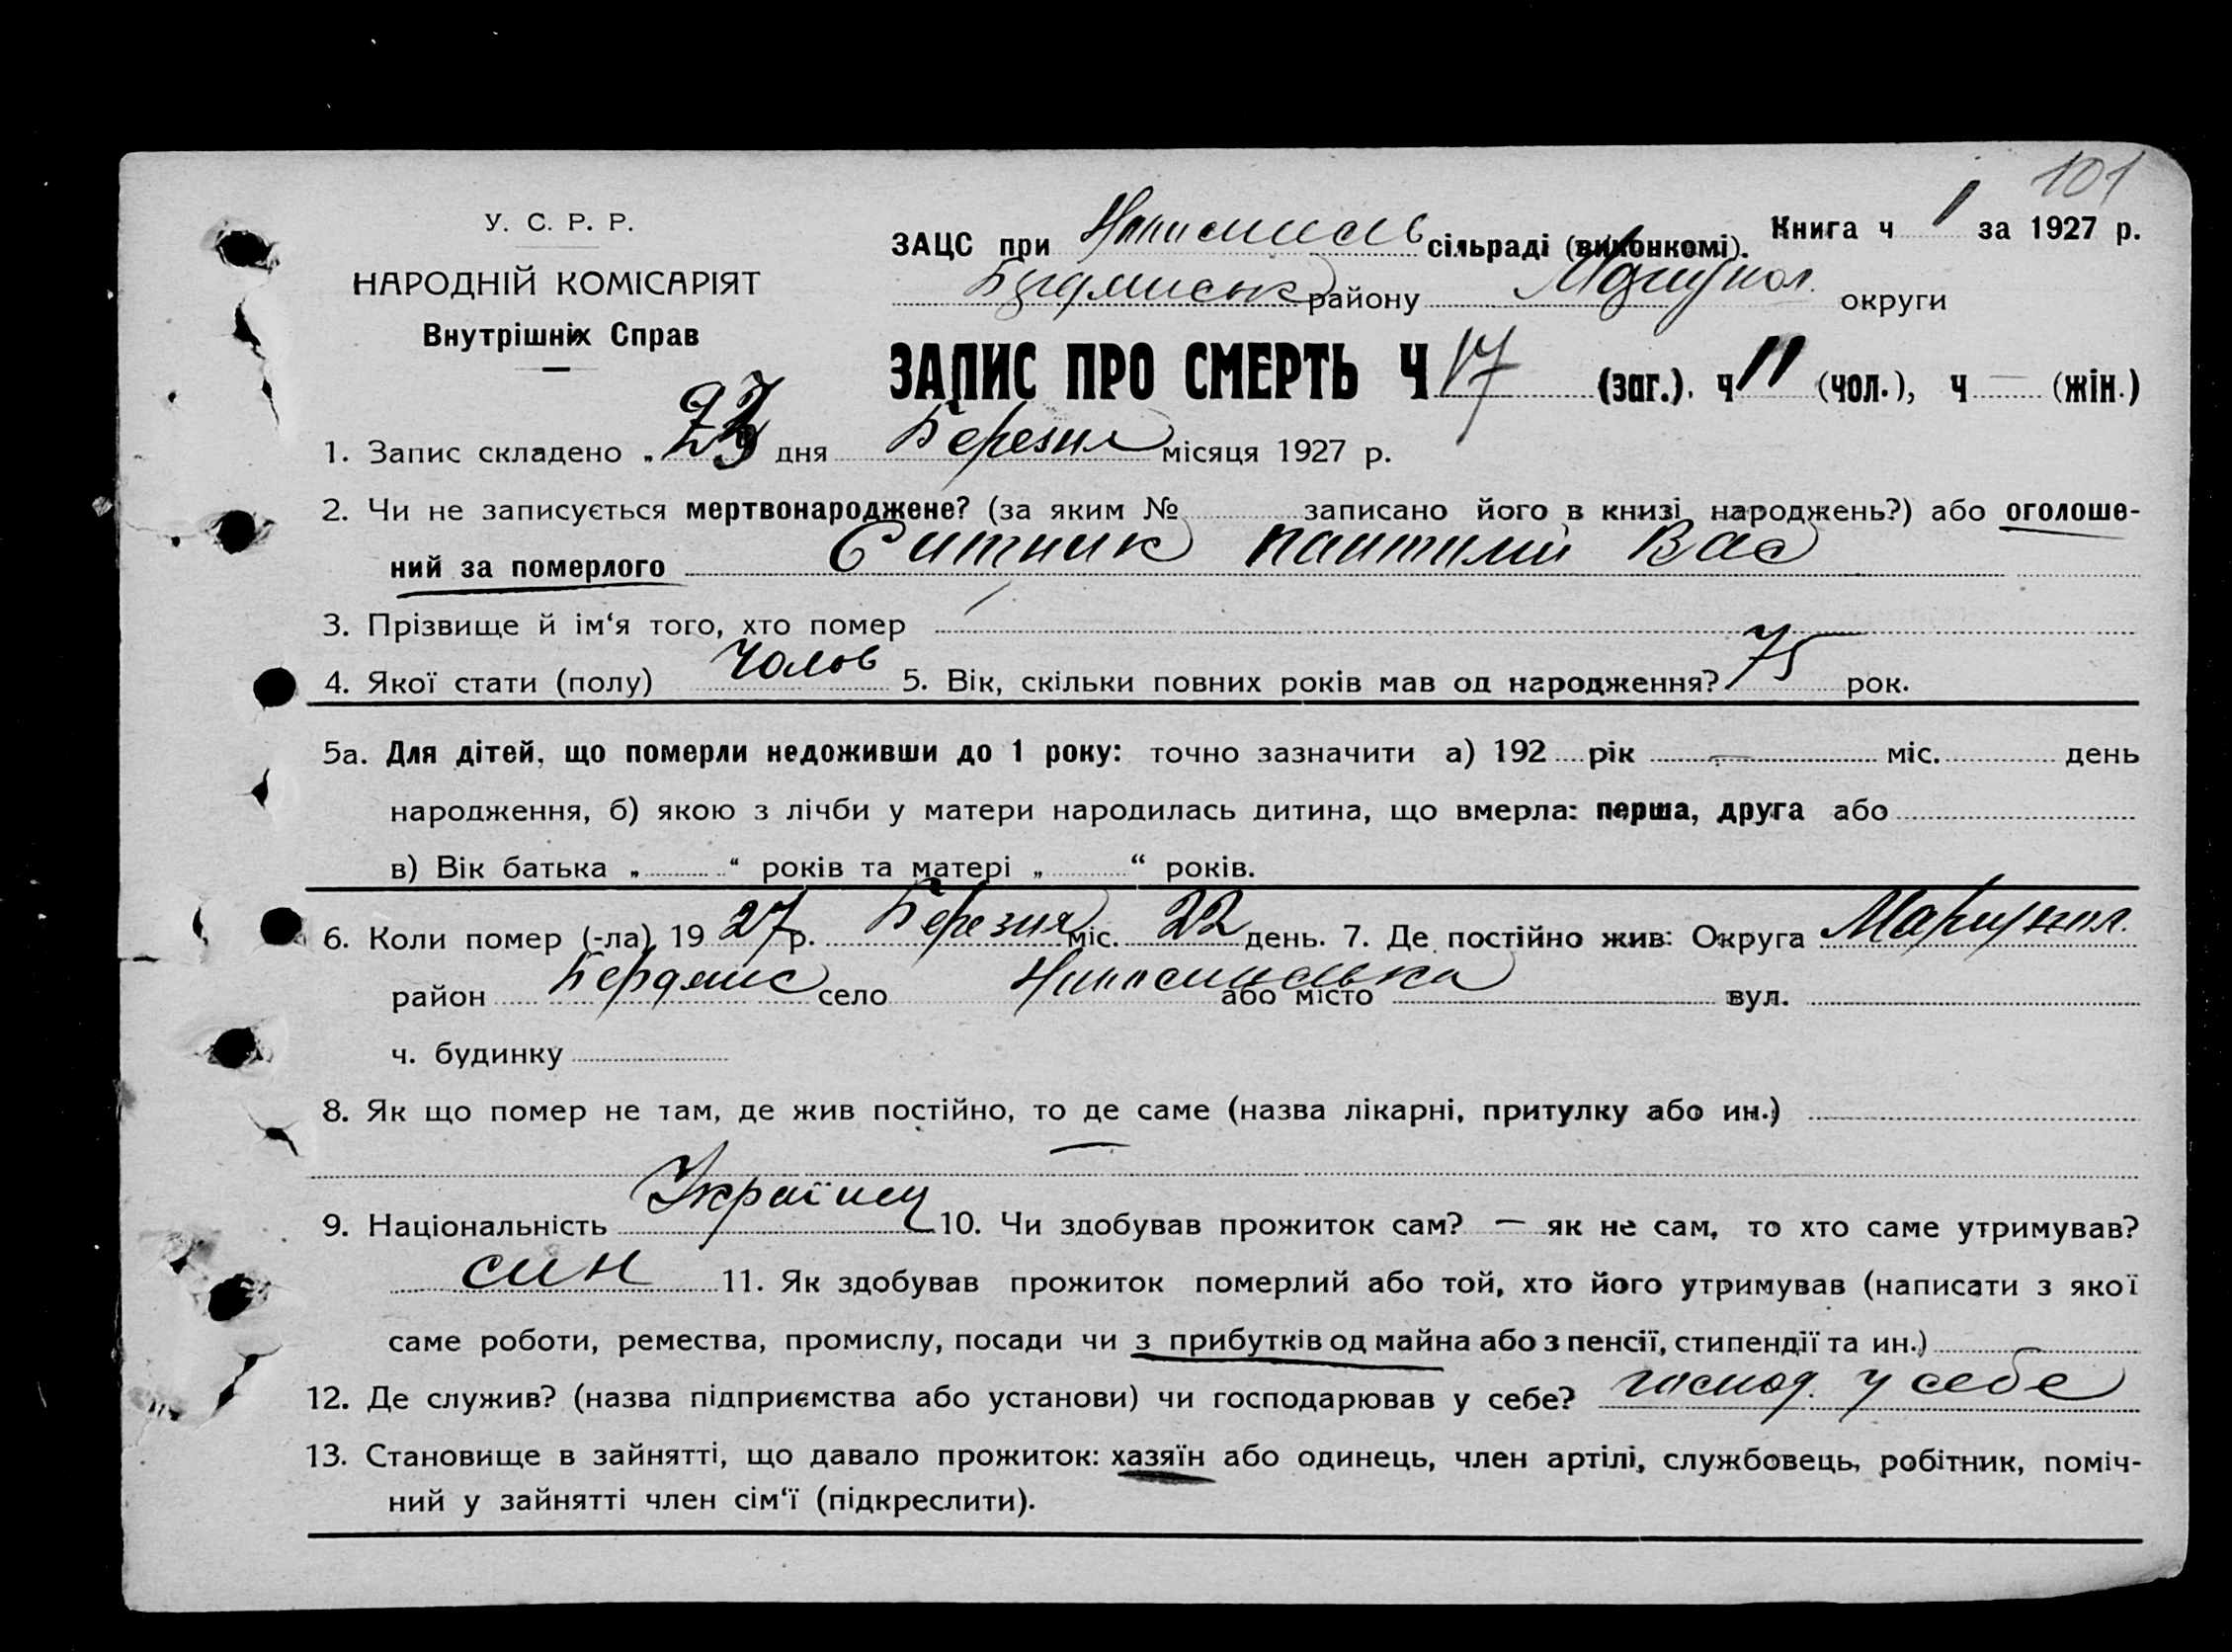 101
У. С. Р. Р.
НАРОДНІЙ КОМІСАРІЯТ
Внутрішніх Справ
ЗАЦС при сільраді (виконкомі). Книга ч 1 за 1927 р.
району Маріупол. округи
ЗАПИС ПРО СМЕРТЬ Ч 17 (заг.). ч 11 (чол.), ч — (жін.)
1. Запис складено „ 23 дня Березня місяця 1927 р.
2. Чи не записується мертвонароджене? (за яким № записано його в книзі народжень?) або оголоше-
ний за померлого Ситник Пантилий Вас
3. Прізвище й ім‘я того, хто помер
4. Якої стати (полу) Чолов 5. Вік, скільки повних років мав од народження? 75 рок.
5а. Для дітей, що померли недоживши до 1 року: точно зазначити а) 192 рік — міс. день
народження, б) якою з лічби у матери народилась дитина, що вмерла: перша, друга або
в) Вік батька „ “ років та матері „ “ років.
6. Коли помер (-ла) 19 27 р. Березня міс. 22 день. 7. Де постійно жив: Округа Маріупол.
район Бердянс село або місто вул.
ч. будинку
8. Як що помер не там, де жив постійно, то де саме (назва лікарні, притулку або ин.)
—
9. Національність Українец 10. Чи здобував прожиток сам? — як не сам, то хто саме утримував?
син 11. Як здобував прожиток померлий або той, хто його утримував (написати з якої
саме роботи, ремества, промислу, посади чи з прибутків од майна або з пенсії, стипендії та ин.)
12. Де служив? (назва підприємства або установи) чи господарював у себе? господ. у себе
13. Становище в зайнятті, що давало прожиток: хазяїн або одинець, член артілі, службовець, робітник, поміч-
ний у зайнятті член сім‘ї (підкреслити).